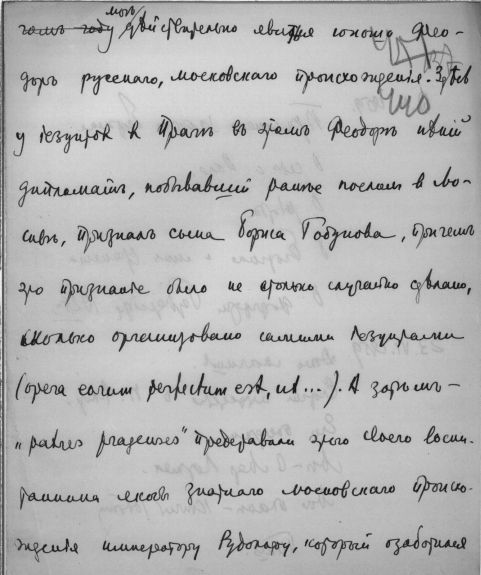 могъ действительно явиться юноша Фео-
доръ русскаго, московскаго происхожденiя. Здѣсь
у iезуитовъ в Прагѣ въ этомъ Феодорѣ нѣкiй
дипломатъ, побывавшiй ранѣе посломъ в Мо-
сквѣ, призналъ сына Бориса Годунова, причемъ
это признанiе было не столько случайно сдѣлано,
сколько организовано самими iезуитами
(opera eorum perfectum est, ut ...). А затѣмъ –
„patres pragenses" представили этого своего воспи-
танника якобы знатнаго московскаго происхо-
жденiя императору Рудольфу, который озаботился